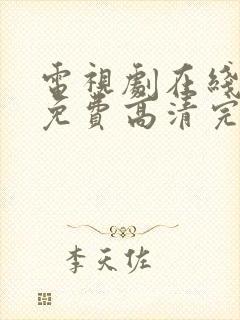 電視劇在綫
免費高清完
李天佐